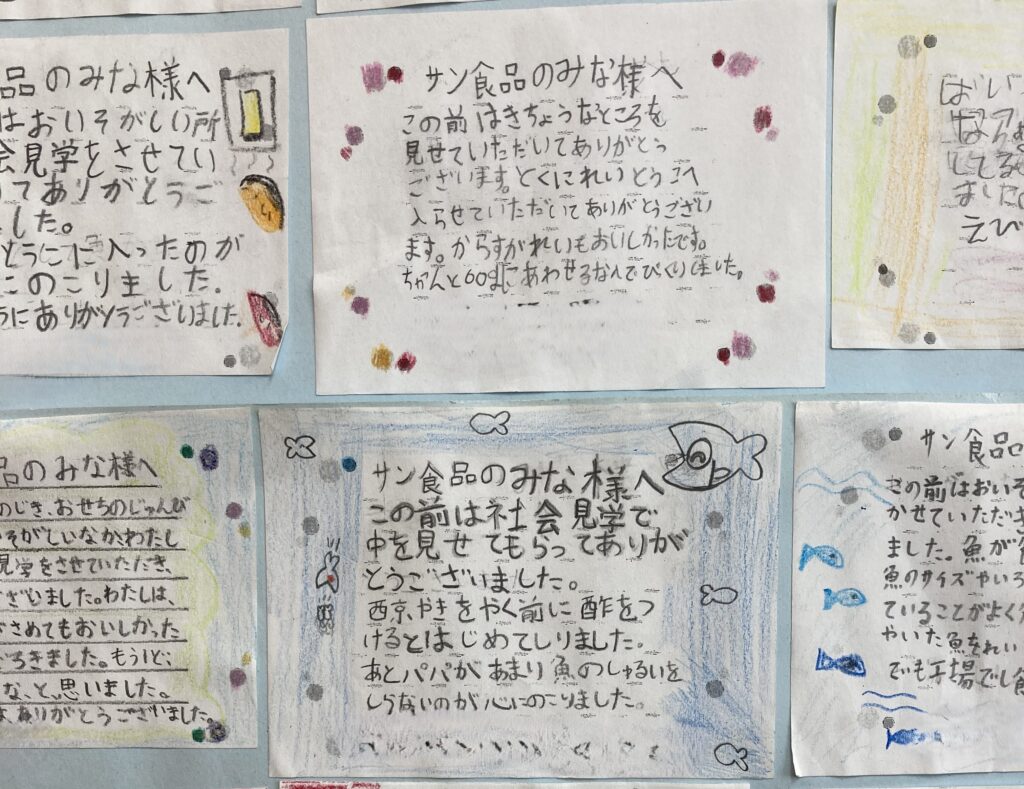 品のみな様へ
はおいそがしい所
会見学をさせてい
てありがとうご
した。
とうこに入ったのが
このこりました.
にありがとうございました.
サン食品のみな様へ
この前はきちょうなところを
見せていただいてありがとう
ございます。とくにれいとうこへ
入らせていただいてありがとうござい
ます。からすがれいもおいしかったです。
ちゃんと60gにあわせるなんてびっくりしました。
はい
してる
ました
えび
品のみな様へ
のじき、おせちのじゅんび
そがしいなか、わたし
見学をさせていただき、
ざいました。わたしは、
さめてもおいしかった
ろきました。もういど、
な、と、思いました。
ありがとうございました。
サン食品のみな様へ
この前は社会見学で
中を見せてもらってありが
とうございました。
西京やきをやく前に酢をつ
けるとはじめてしりました。
あとパパがあまり魚のしゅるいを
しらないのが心にのこりました。
サン食品の
この前はおいそ
かせていただき
ました。魚が
魚のサイズやいろ
ていることがよく
やいた魚をれい
でも工場でし